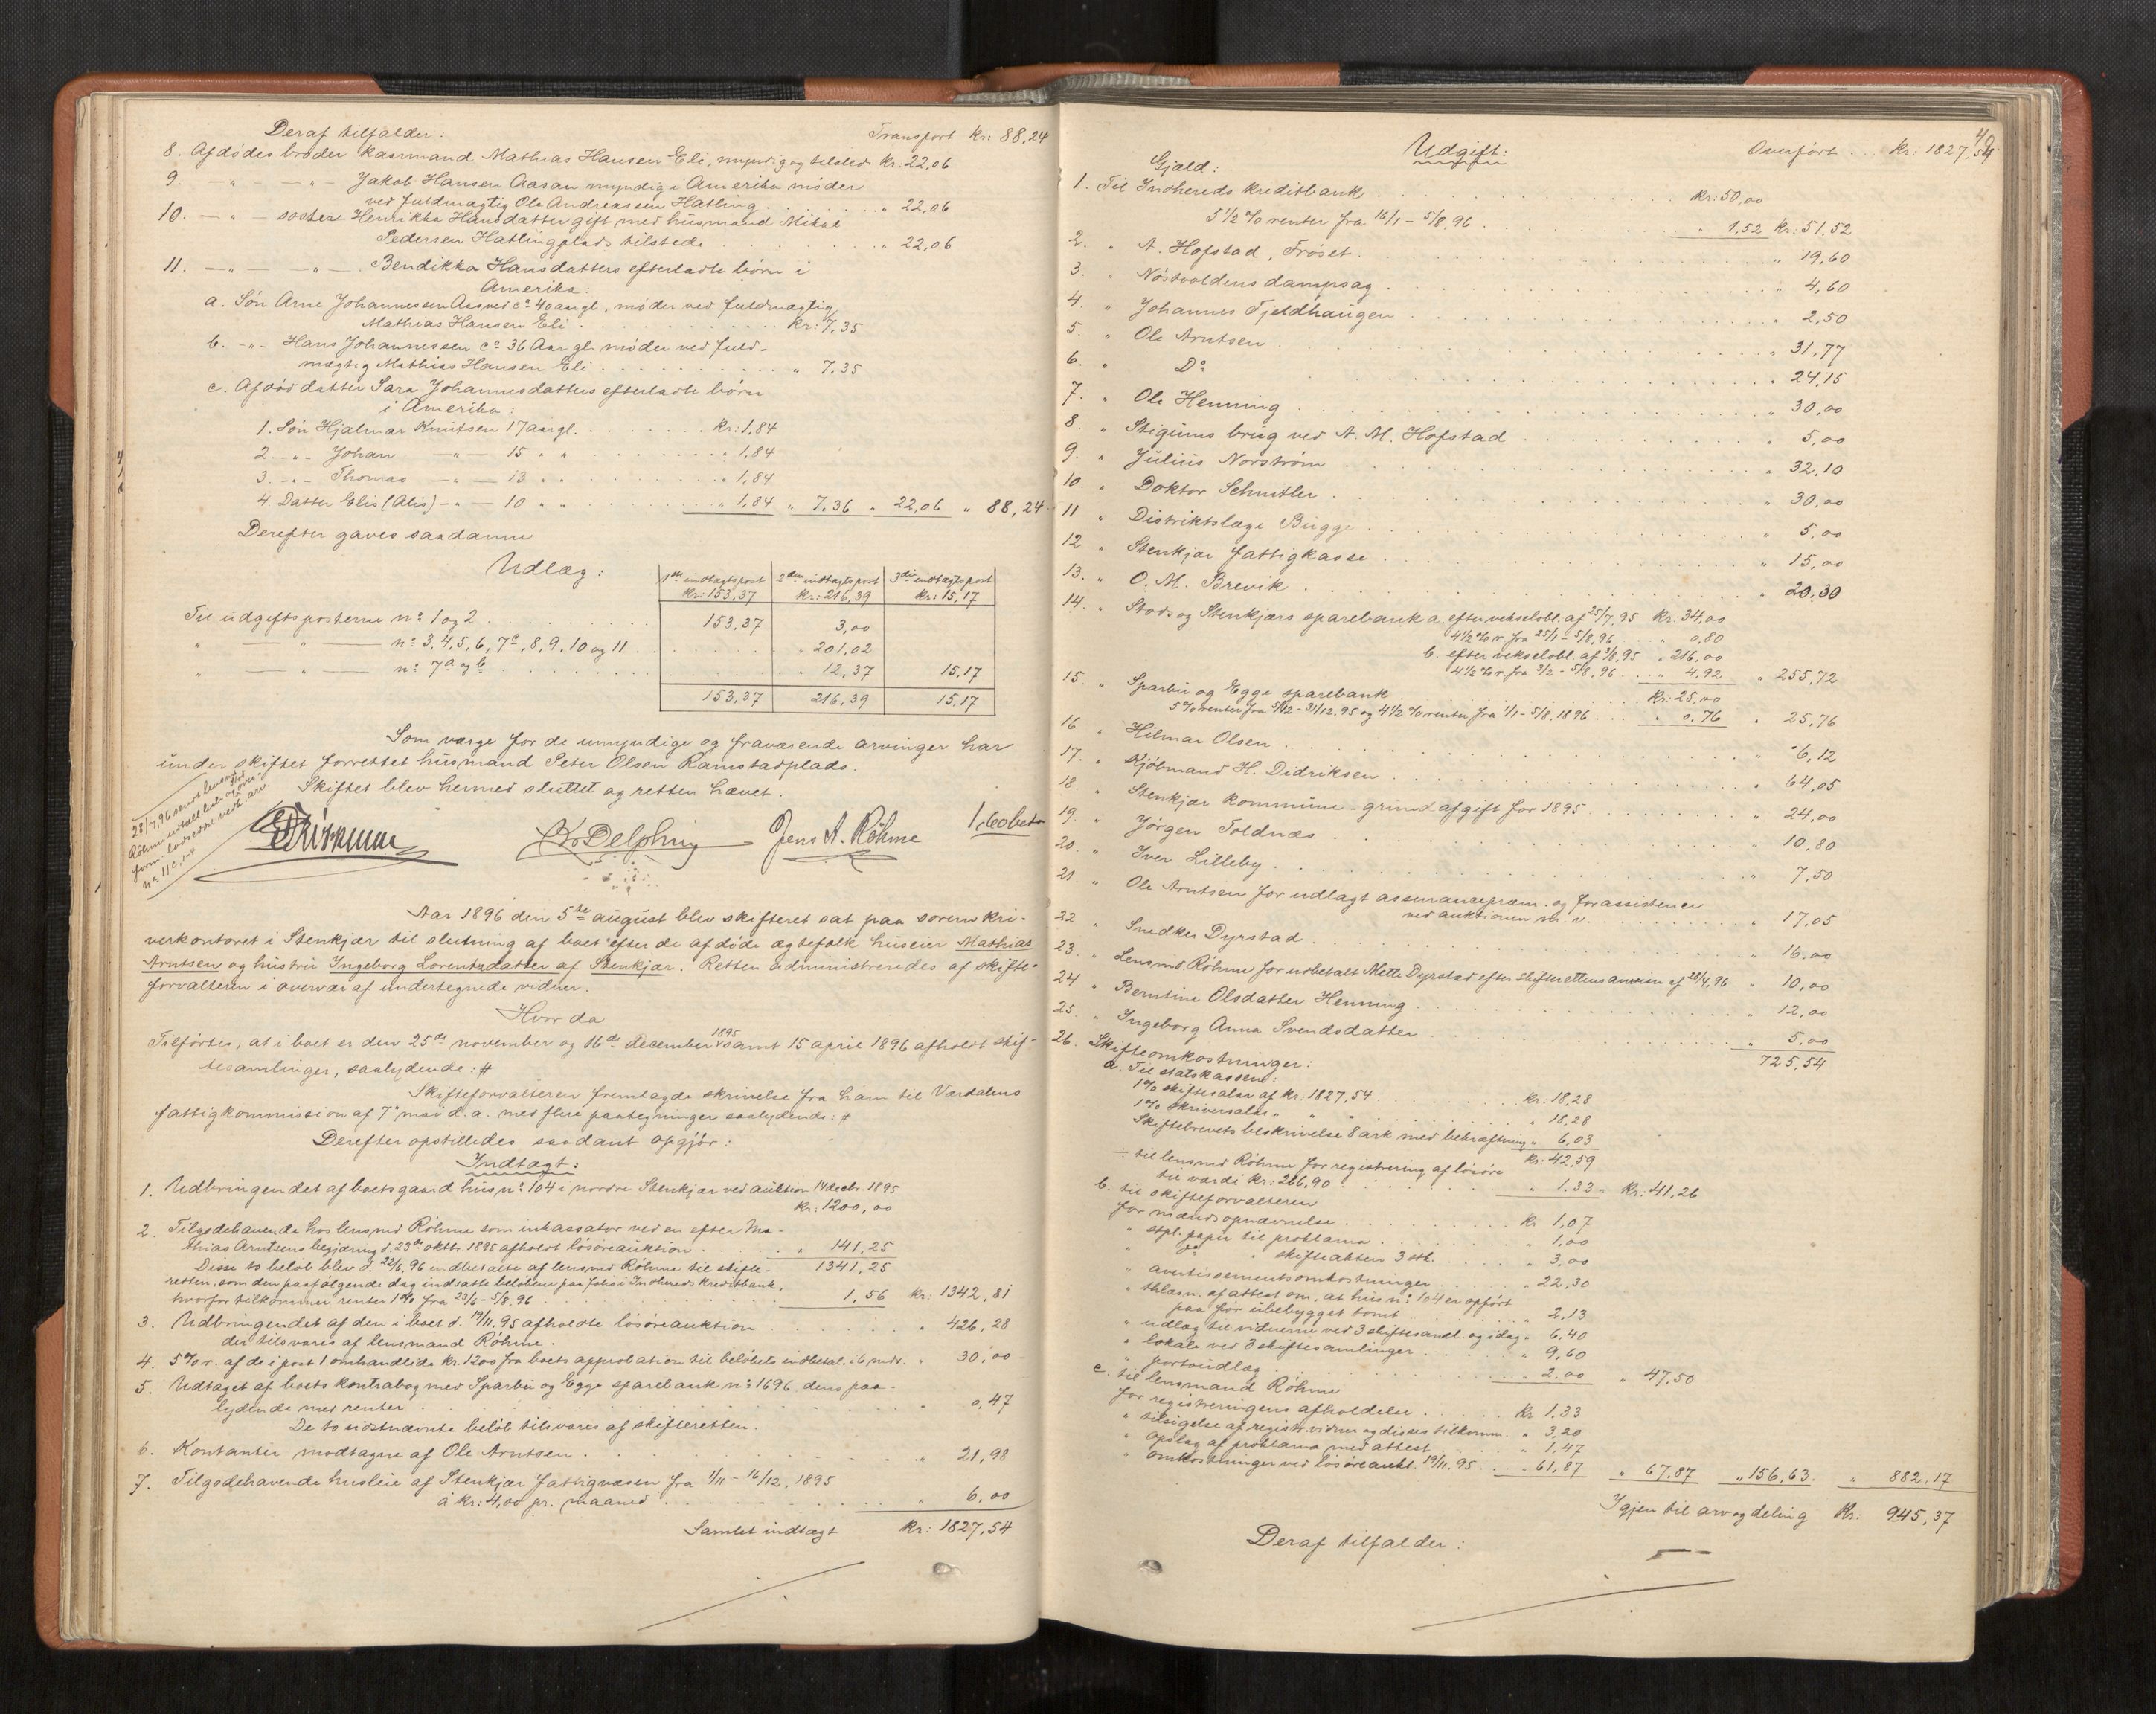 Deraf tilfalder: Transport kr: 88,24
8. Afdödes broder kaarmand Mathias Hansen Eli, myndig og tilstede kr: 22,06
9. — „ — „ — Jakob Hansen Aasan myndig i Amerika møder
ved fuldmægtig Ole Andreassen Hatling . . . „ 22,06
10. — „ — søster Henrikka Hansdatter gift med husmand Mikal
Pedersen Hatlingplads tilstede . . . „ 22,06
11. — „ — „ — Bendikka Hansdatters efterladte børn i
Amerika:
a. Søn Arne Johannessen Aasved ca 40 aar gl., møder ved fuldmægtig
Mathias Hansen Eli . . . kr: 7,35
b. - „ - Hans Johannessen ca 36 Aar gl. møder ved fuld-
mægtig Mathias Hansen Eli . . . „ 7,35
c. Afdød datter Sara Johannesdatters efterladte børn
i Amerika:
1. Søn Hjalmar Knutsen 17 aar gl. . . . kr: 1,84
2. - „ - Johan — „ — 15 „ „ . . . „ 1,84
3. - „ - Thomas — „ — 13 „ . . . „ 1,84
4. Datter Elis (Alis) - „ — 10 „ „ . . . „ 1,84 „ 7,36 „ 22,06 „ 88,24
Derefter gaves saadanne
Udlæg:
1ste indtægtspost 2den indtægtspost 3die indtægtspost
kr: 153,37 kr: 216,39 kr: 15,17
Til udgiftsposterne no 1 og 2 . . . 153,37 3,00
„ — „ — no 3, 4, 5, 6, 7c, 8, 9, 10 og 11 . . . „ 201,02
„ — „ — no 7a og b . . . „ 12,37 15,17
153,37 216,39 15,17
Som værge for de umyndige og fraværende arvinger har
under skiftet forrettet husmand Peter Olsen Ramstadplads.
Skiftet blev hermed sluttet og retten hævet.
28/7,96 sendt lensmd
Röhme
no 11 c, 1-4
K. Delphin Jens A. Röhme 1,60 bet
Aar 1896 den 5te august blev skifteret sat paa sorenskri-
verkontoret i Stenkjær til slutning af boet efter de afdöde ægtefolk huseier Mathias
Arntsen og hustru Ingeborg Lorentzdatter af Stenkjær. Retten administreredes af skifte-
forvalteren i overvær af undertegnede vidner.
Hvor da
Tilførtes, at i boet er den 25de november og 16de december 1895 samt 15 april 1896 afholdt skif-
tesamlinger, saalydende: #
Skifteforvalteren fremlagde skrivelse fra ham til Værdalens
fattigkommission af 7de mai d. a. med flere paategninger saalydende: #
Derefter opstilledes saadant opgjør:
Indtægt:
1. Udbringendet af boets gaard hus no 104 i nordre Stenkjær ved auktion 14 decbr. 1895
kr: 1200,00
2. Tilgodehavende hos lensmd Röhme som inkassator ved en efter Ma-
thias Arntsens begjæring d. 23de oktbr. 1895 afholdt løsöreauktion . . . „ 141,25
Disse to beløb blev d. 22/6,96 indbetalte af lensmd Röhme til skifte- 1341,25
retten, som den paafølgende dag indsatte beløbene paa folio i Indhereds kreditbank,
hvorfor tilkommer renter 1% fra 23/6 - 5/8,96 . . . 1,56 kr: 1342,81
3. Udbringendet af den i boet d. 19/11,95 afholdte løsöreauktion . . . „ 426,28
der tilsvares af lensmand Röhme.
4. 5% r. af de i post 1 omhandlede kr. 1200 fra boets approbation til beløbets indbetal. i 6 mdr. „ 30,00
5. Udtaget af boets kontrabog med Sparbu og Egge sparebank no 1696 dens paa-
lydende med renter . . . „ 0,47
De to sidstnævnte beløb tilsvares af skifteretten.
6. Kontanter modtagne af Ole Arntsen . . . „ 21,98
7. Tilgodehavende husleie af Stenkjær fattigvæsen fra 1/11 - 16/12, 1895
à kr: 4,00 pr. maaned . . . „ 6,00
Samlet indtægt kr: 1827,54
Udgift: Overført . kr: 1827,54
Gjæld:
1. Til Indhereds kreditbank . . . kr: 50,00
5 1/2 % renter fra 16/1 - 5/8,96 . . . „ 1,52 kr: 51,52
2. „ A. Hofstad, Frøset . . . „ 19,60
3. „ Nöstvoldens dampsag . . . „ 4,60
4. „ Johannes Fjeldhaugen . . . „ 2,50
5. „ Ole Arntsen . . . „ 31,77
6. „ Do . . . „ 24,15
7. „ Ole Henning . . . „ 30,00
8. „ Stigums brug ved A. M. Hofstad . . . „ 5,00
9. „ Julius Norström . . . „ 32,10
10. „ Doktor Schnitler . . . „ 30,00
11 „ Distriktslæge Bugge . . . „ 5,00
12 „ Stenkjær fattigkasse . . . „ 15,00
13. „ O. M. Brevik . . . „ 20,30
14. „ Stods og Stenkjærs sparebank a. efter vekselobl. af 25/7,95 kr: 34,00
4 1/2 % r. fra 25/1 - 5/8,96 . . . „ 0,80
b. efter vekselobl. af 3/8,95 „ 216,00
4 1/2 % r. fra 3/2 - 5/8,96 . . . „ 4,92 „ 255,72
15. „ Sparbu og Egge sparebank . . . kr: 25,00
5% renter fra 5/12 - 31/12,95 og 4 1/2 % renter fra 1/1 - 5/8,1896 . . . „ 0,76 „ 25,76
16 „ Hilmar Olsen . . . „ 6,12
17. „ Kjöbmand H. Didriksen . . . „ 64,05
18. „ Stenkjær kommune - grundafgift for 1895 . . . „ 24,00
19. „ Jörgen Foldnæs . . . „ 10,80
20. „ Iver Lilleby . . . „ 7,50
21. „ Ole Arntsen for udlagt assurancepræm. og for assistence
ved auktionen m. v. . . . „ 17,05
22 „ Snedker Dyrstad . . . „ 16,00
23. „ Lensmd Röhme for udbetalt Mette Dyrstad efter skifterettens anvisn. af 28/4,96 „ 10,00
24 „ Berntine Olsdatter Henning . . . „ 12,00
25. „ Ingeborg Anna Svendsdatter . . . „ 5,00
725,54
26. Skifteomkostninger:
a. Til statskassen:
1% skiftesalær af kr: 1827,54 . . . kr: 18,28
1% skriversalær „ „ „ . . . „ 18,28
Skiftebrevets beskrivelse 8 ark med bekræftning „ 6,03
kr: 42,59
÷ til lensmd Röhme for registrering af løsöre
til værdi kr: 266,90 . . . „ 1,33 „ kr: 41,26
b. til skifteforvalteren
for mændsopnævnelse . . . kr 1,07
„ stpl. papir til proklama . . . „ 1,00
„ „ skifteakten 3 stk. . . . „ 3,00
„ avertissementsomkostninger . . . „ 22,30
„ thlæsn. af attest om, at hus no 104 er opført
paa før ubebygget tomt . . . „ 2,13
„ udlæg til vidnerne ved 3 skiftesaml. og idag „ 6,40
„ lokale ved 3 skiftesamlinger . . . „ 9,60
„ portoudlæg . . . „ 2,00 „ 47,50
c. til lensmand Röhme
for registreringens afholdelse . . . kr 1,33
„ tilsigelse af registr. vidner og disses tilkomm. „ 3,20
„ opslag af proklama med attest . . . „ 1,47
„ omkostninger ved løsöreaukt. 19/11.95 . . . „ 61,87 „ 67,87 „ 156,63 . „ 882,17
Igjen til arv og deling kr: 945,37
Deraf tilfalder: